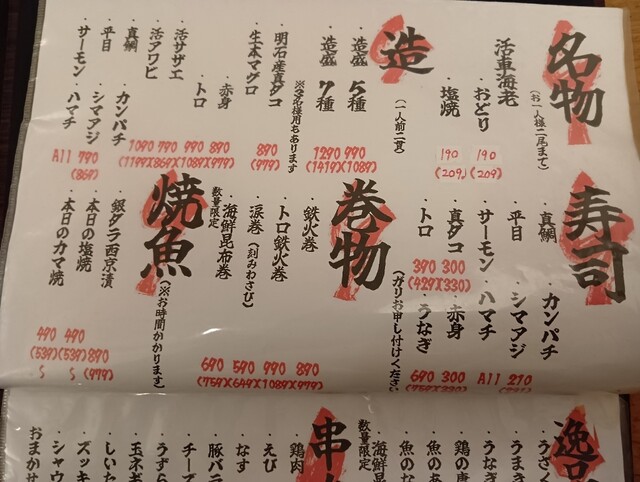 名物
(お一人様二尾まで)
活車海老
・おどり
190
(209)
・塩焼
190
(209)
造
(一人前二貫)
・造盛 5種
990
(1089)
・造盛 7種
1290
(1419)
※2名様用もあります
・明石産真ダコ
890
(979)
・生本マグロ
・赤身
890
(979)
・トロ
990
(1089)
・活サザエ
790
(869)
・活アワビ
1090
(1199)
・真鯛 ・カンパチ
・平目 ・シマアジ
・サーモン ・ハマチ
All 790
(869)
寿司
・真鯛 ・カンパチ
・平目 ・シマアジ
・サーモン ・ハマチ
All 270
・真ダコ
300
(330)
・赤身
300
(330)
・トロ
390
(429)
・うなぎ
690
(759)
(ガリお申し付けください
巻物
・鉄火巻
890
(979)
・トロ鉄火巻
990
(1089)
・涙巻(刻みわさび)
590
(649)
数量限定
・海鮮昆布巻
690
(759)
焼魚
(※お時間かかります)
・銀ダラ西京漬
890
(979)
・本日の塩焼
490
(539)
〜
・本日のカマ焼
490
(539)
〜
逸品
・うざく
・うまき
・うなぎ
・鶏の唐
・魚のあ
・魚のな
数量限定
・海鮮昆
串
・鶏肉
・えび
・なす
・豚バラ
・チーズ
・うずら
・玉ネギ
・しいた
・ズッキ
・シャウ
おまかせ